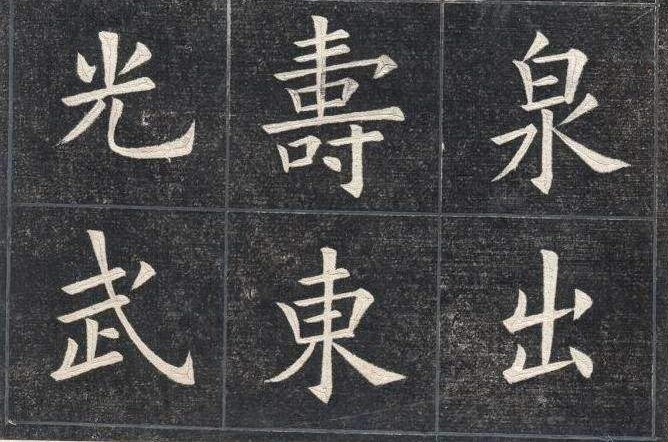 泉出
壽東
光武